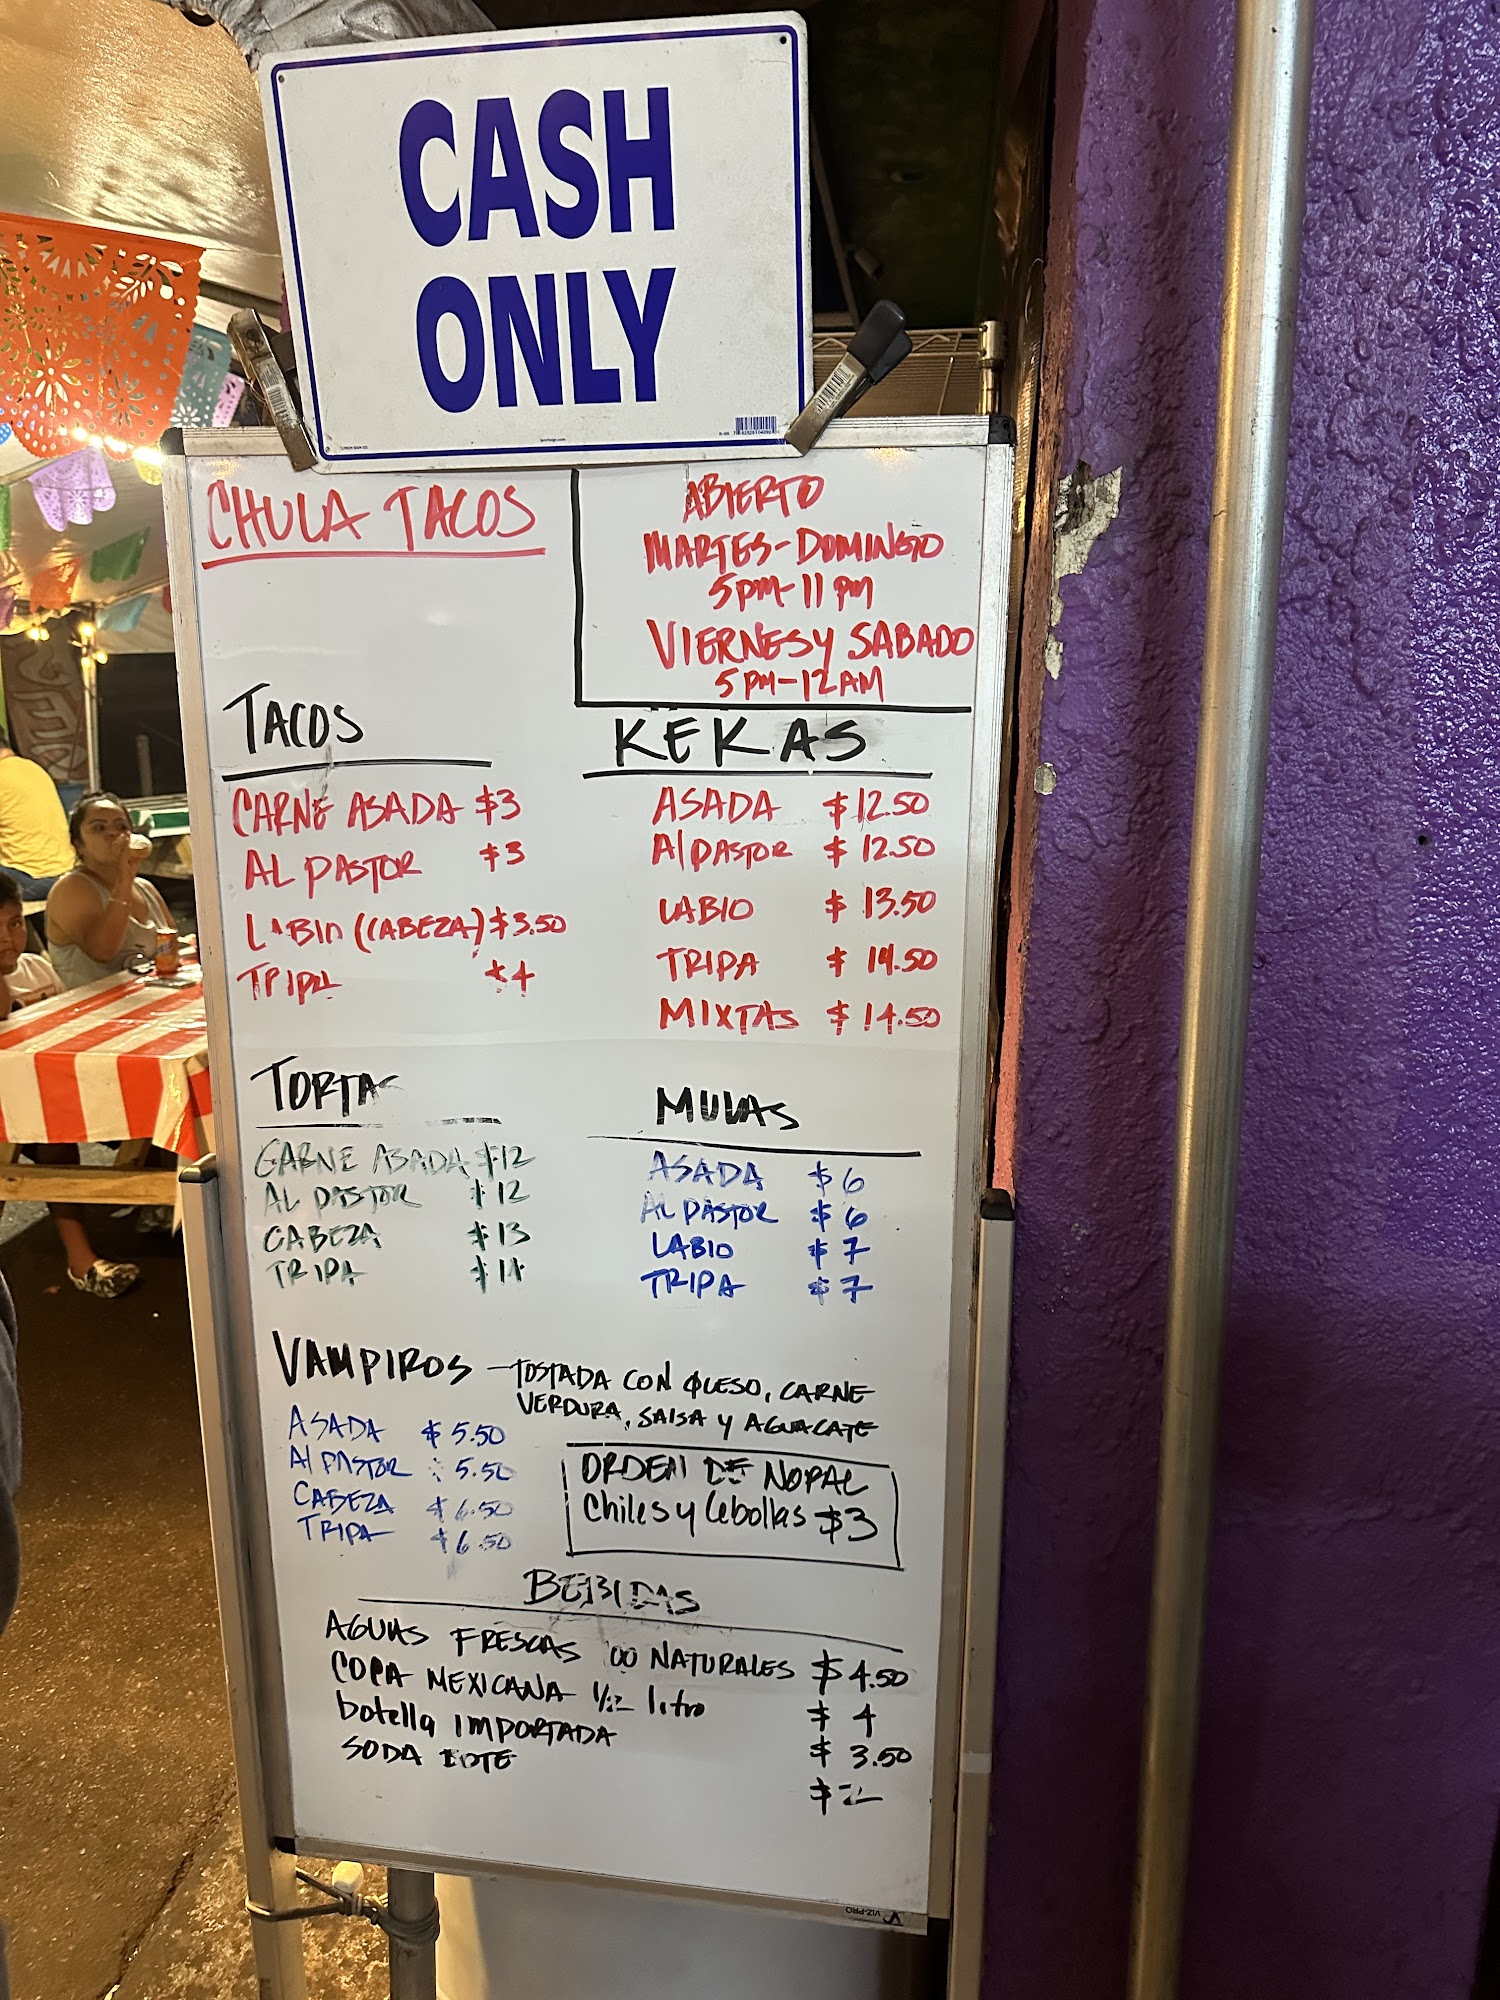 CASH
ONLY
CHULA TACOS
ABIERTO
MARTES-DOMINGO
5PM-11PM
VIERNES Y SABADO
5PM-12AM
TACOS
CARNE ASADA $3
AL PASTOR $3
LABIO (CABEZA) $3.50
TRIPA $4
KEKAS
ASADA $12.50
Al PASTOR $12.50
LABIO $13.50
TRIPA $14.50
MIXTAS $14.50
TORTAS
CARNE ASADA $12
AL PASTOR $12
CABEZA $13
TRIPA $14
MULAS
ASADA $6
AL PASTOR $6
LABIO $7
TRIPA $7
VAMPIROS - TOSTADA CON QUESO, CARNE
VERDURA, SALSA Y AGUACATE
ASADA $5.50
Al PASTOR $5.50
CABEZA $6.50
TRIPA $6.50
ORDEN DE NOPAL
Chiles y Cebollas $3
BEBIDAS
AGUAS FRESCAS 100 NATURALES $4.50
COCA MEXICANA 1/2 litro $4
botella IMPORTADA $3.50
SODA BOTE $2
VIZ-PRO